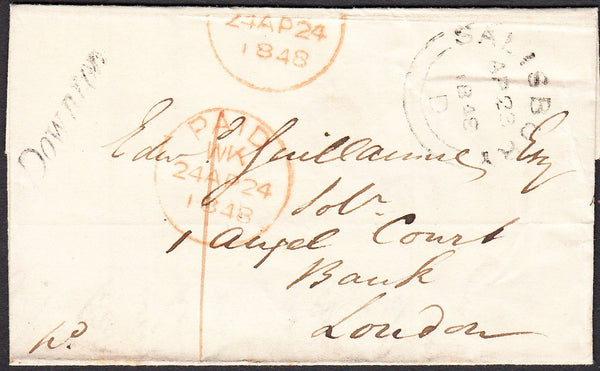 24AP24
1848
SALISBURY
AP 23
1848
D
Downton
PAID
WK
24AP24
1848
Edwd. Guillaume Esq
Solr.
1 Angel Court
Bank
London
pd